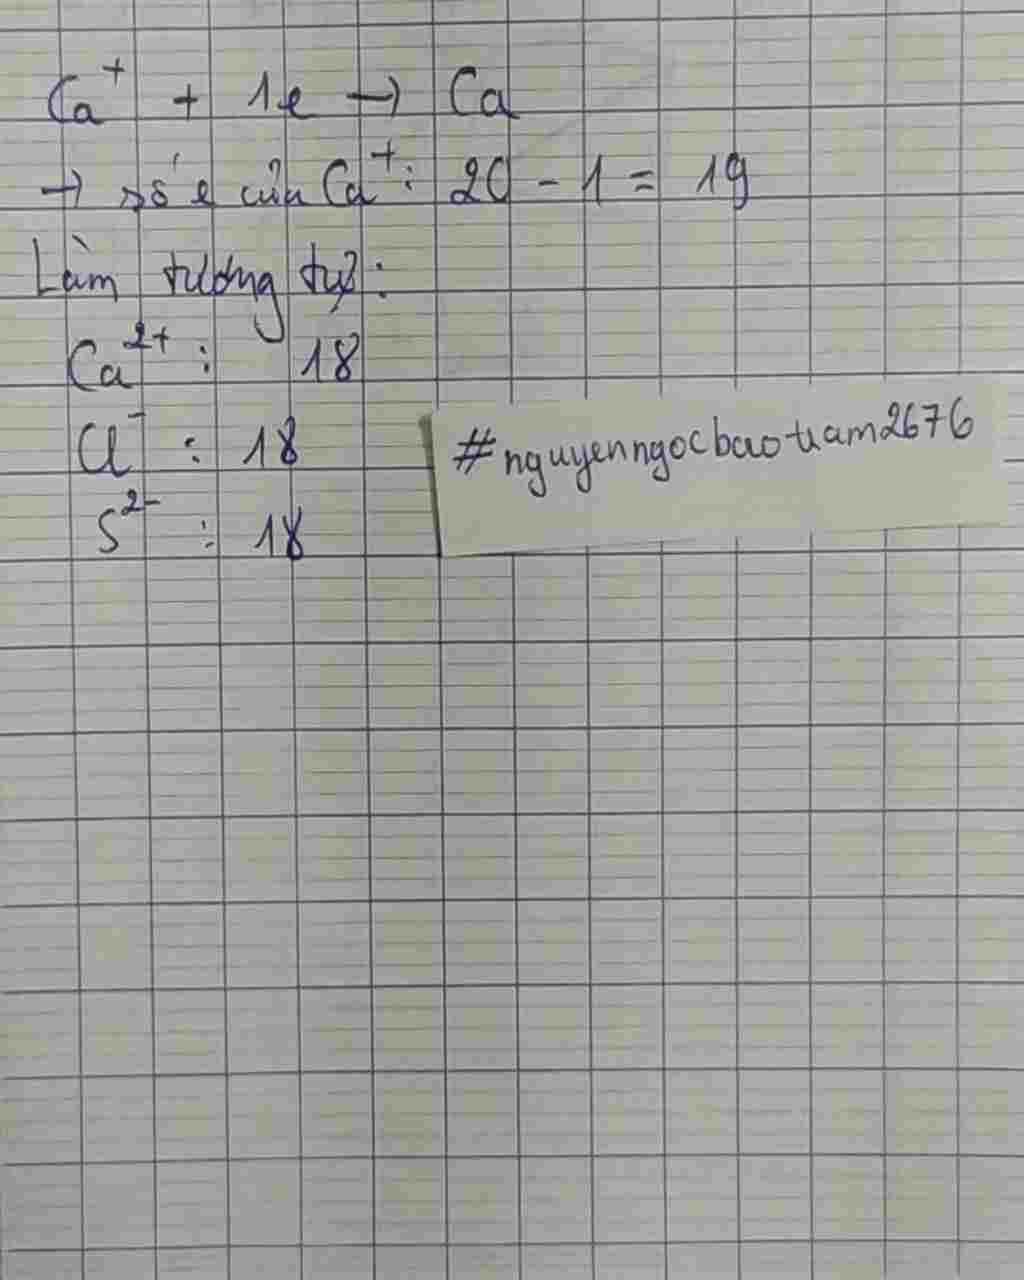 Ca⁺ + 1e → Ca
→ số e của Ca⁺: 20 - 1 = 19
Làm tương tự:
Ca²⁺ : 18
Cl⁻ : 18
S²⁻ : 18
#nguyenngocbaotram2676